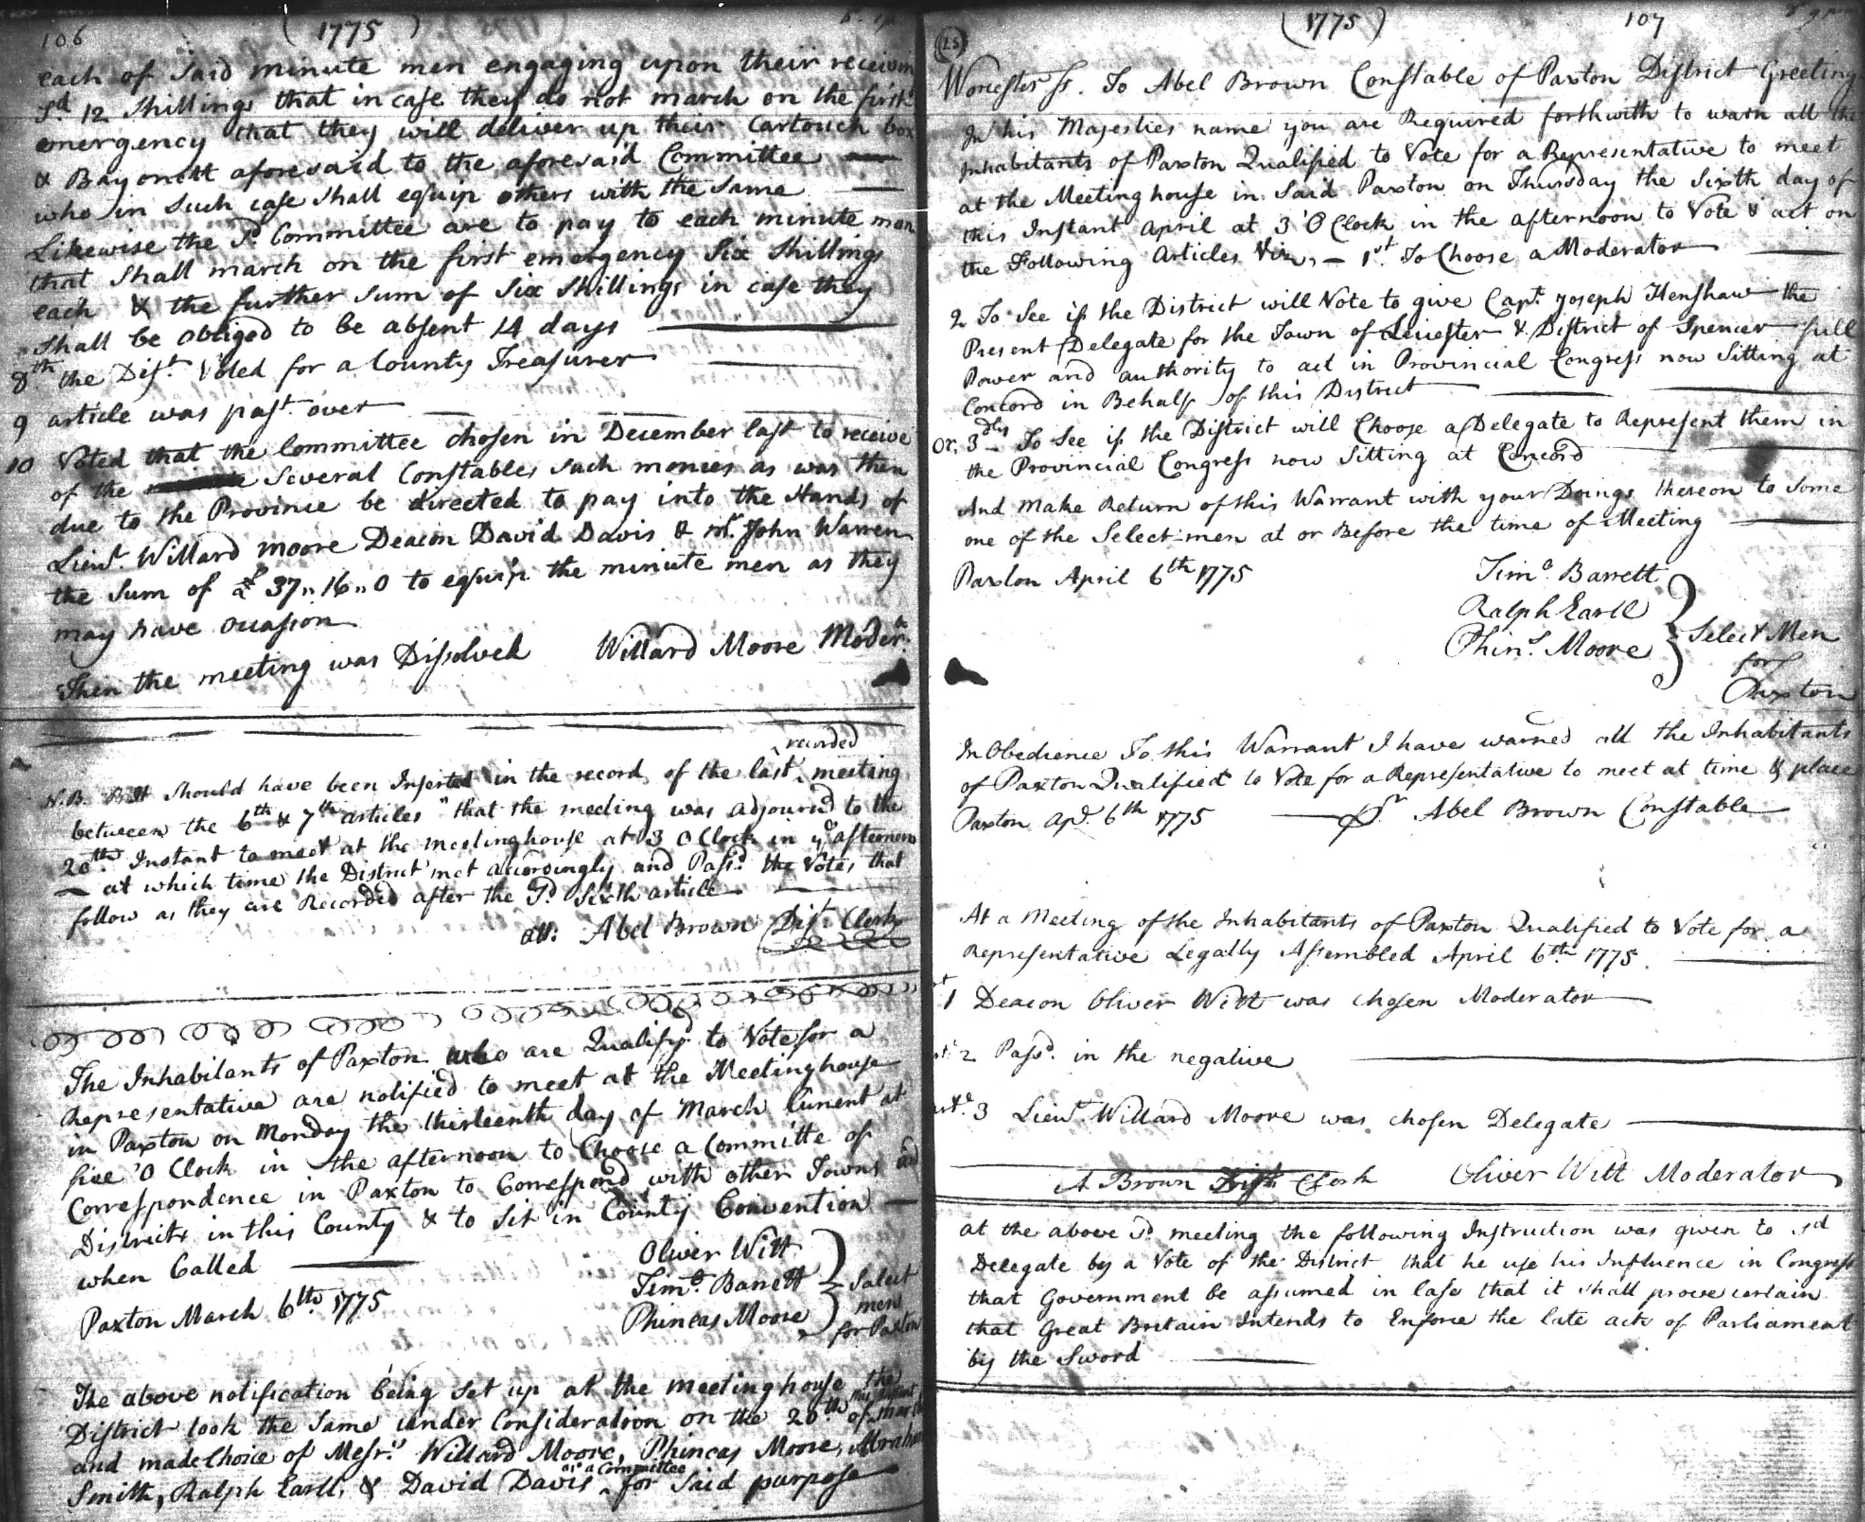 106 (1775)
each of said minute men engaging upon their receiving
sd 12 shillings that in case they do not march on the first
emergency that they will deliver up their Cartouch box
& Bayonett aforesaid to the aforesaid Committee
who in such case shall equip others with the same
Likewise the sd Committee are to pay to each minute man
that shall march on the first emergency six shillings
each & the further sum of six shillings in case they
shall be obliged to be absent 14 days
8th the Dist. Voted for a County Treasurer
9 article was past over
10 Voted that the Committee chosen in December last to receive
of the several Constables such monies as was then
due to the Province be directed to pay into the Hands of
Lieut. Willard moore Deacon David Davis & mr. John Warren
the sum of £ 37,, 16,, 0 to equip the minute men as they
may have occasion
Then the meeting was Dissolved Willard Moore Moder.
recorded
N.B. It should have been Inserted in the record of the last meeting
between the 6th & 7th articles "that the meeting was adjournd to the
20th Instant to meet at the meetinghouse at 3 O Clock in ye afternoon
at which time the District met accordingly and Passd. the Votes that
follow as they are Recorded after the sd sixth article
att. Abel Brown Dist. Clerk
The Inhabitants of Paxton who are Qualifyd to Vote for a
Representative are notified to meet at the Meetinghouse
in Paxton on Monday the thirteenth day of March Current at
five 'O Clock in the afternoon to Choose a Committe of
Correspondence in Paxton to Correspond with other Towns and
Districts in this County & to sit in County Convention
when Called
Oliver Witt
Timo. Barrett
Phineas Moore
Select
men
for Paxton
Paxton March 6th 1775
The above notification being set up at the meetinghouse the
District took the same under Consideration on the 20th of march
and made Choice of Messrs. Willard Moore, Phineas Moore, Abraham
as a Committee
Smith, Ralph Earll, & David Davis for said purpose
(1775) 107
(25)
Worcester ss. To Abel Brown Constable of Paxton District Greeting
In his Majesties name you are Required forthwith to warn all the
Inhabitants of Paxton Qualified to Vote for a Representative to meet
at the Meeting house in said Paxton on Thursday the sixth day of
this Instant april at 3 'O Clock in the afternoon to Vote & act on
the Following Articles Viz, 1st. To Choose a Moderator
2 To See if the District will Vote to give Capt. Joseph Henshaw the
Present Delegate for the Town of Leicester & District of Spencer full
Power and authority to act in Provincial Congress now Sitting at
Concord in Behalf of this District
Or, 3dly To See if the District will Choose a Delegate to Represent them in
the Provincial Congress now Sitting at Concord
And Make Return of this Warrant with your Doings thereon to some
one of the Select-men at or Before the time of Meeting
Paxton April 6th 1775
Timo. Barrett
Ralph Earll
Phins. Moore
Select Men
for
Paxton
In Obedience To this Warrant I have warned all the Inhabitants
of Paxton Qualified to Vote for a Representative to meet at time & place
Paxton apl. 6th 1775 pr. Abel Brown Constable
At a Meeting of the Inhabitants of Paxton Qualified to Vote for a
Representative Legally Assembled April 6th 1775
1 Deacon Oliver Witt was chosen Moderator
2 Passd. in the negative
3 Lieut. Willard Moore was chosen Delegate
A Brown Dist Clerk Oliver Witt Moderator
at the above sd. meeting the following Instruction was given to sd
Delegate by a Vote of the District that he use his Influence in Congress
that Government be assumed in Case that it shall prove certain
that Great Britain Intends to Enforce the late acts of Parliament
by the Sword